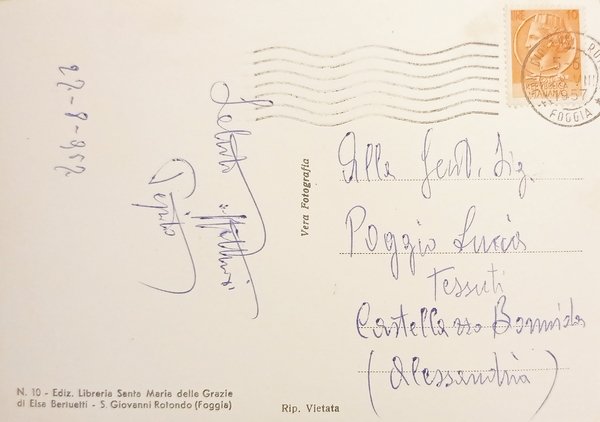 27-8-957
Saluti affettuosi
Pepito
Vera Fotografia
LIRE 10
FOGGIA
1957
Alla Gent. Sig.
Poggio Lucia
Tessuti
Castellazzo Bormida
(Alessandria)
N. 10 - Ediz. Libreria Santa Maria delle Grazie
di Elsa Bertuetti - S. Giovanni Rotondo (Foggia)
Rip. Vietata